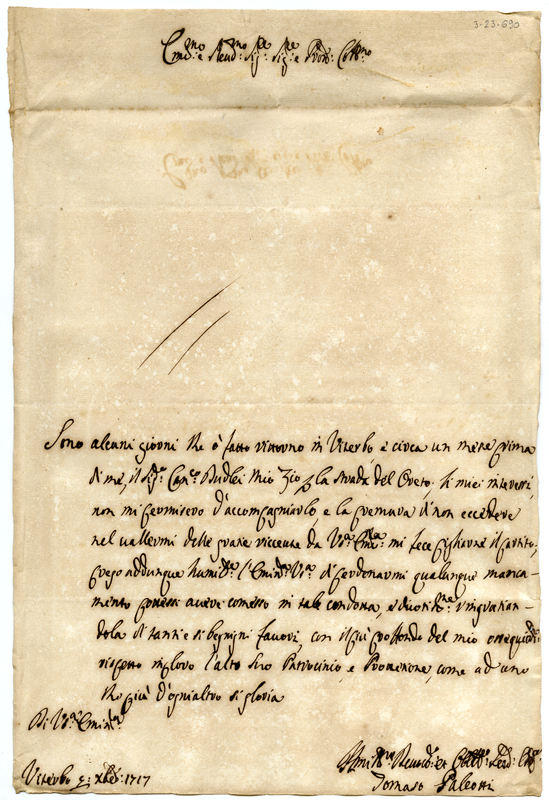 3-23-690
Em:mo e Reud:mo Sig:re Sig:re e Pron: Coll:mo
Sono alcuni giorni che ò fatto ritorno in Viterbo, e circa un mese prima
di me, il Sig:r Can:co mio Zio la strada del . Li miei interessi,
non mi permisero d'accompagniarlo, e la premura di non eccedere
nel valermi delle grazie riceute da V:ra Em:za mi fece pigliarne il partito,
prego addunque humil:te l'Emin:za V:ra di perdonarmi qualunque manca-
mento potessi avere comesso in tale condotta, e ringratian-
dola di tanti e si begnigni favori, con il più profondo del mio ossequi
rispetto imploro l'alto suo Patrocinio, e Protenione, come ad uno
che più d'ogni altro si gloria
Di V:ra Emin:za
Viterbo xbre: 1717
Tomaso Paleotti